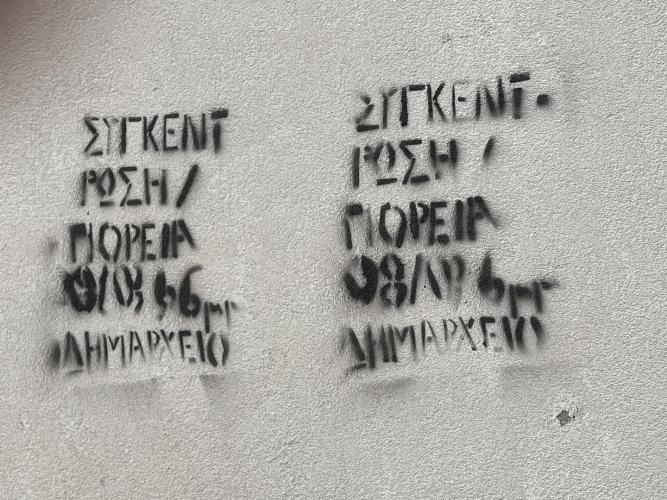 ΣΥΓΚΕΝΤ
ΡΩΣΗ /
ΠΟΡΕΙΑ
6μμ
ΔΗΜΑΡΧΕΙΟ
ΣΥΓΚΕΝΤ.
ΡΩΣΗ /
ΠΟΡΕΙΑ
6μμ
ΔΗΜΑΡΧΕΙΟ